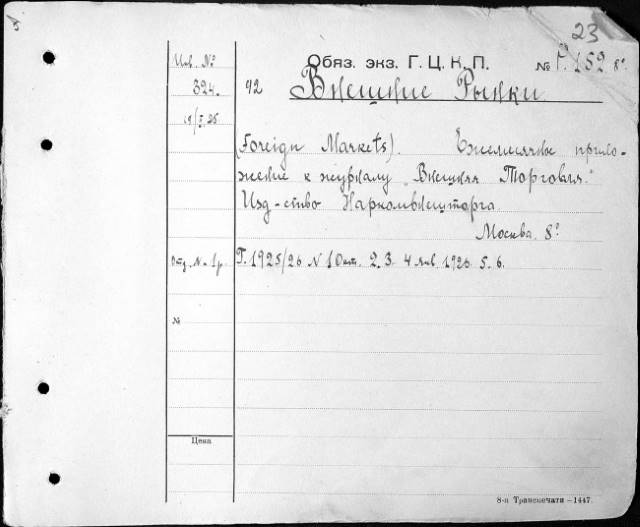 23
Инв. №
Обяз. экз. Г. Ц. К. П.
№ Р. 152 8º
324.
92
Внешние Рынки
19/I 26
(Foreign Markets). Ежемесячное прило-
жение к журналу „Внешняя Торговля."
Изд-ство Наркомвнешторга.
Москва. 8º
Отд. N - 1 р.
Г. 1925/26 N 1 Окт. 2. 3. 4 янв. 1926 5. 6.
№
Цена
8-я Транспечати — 1447.